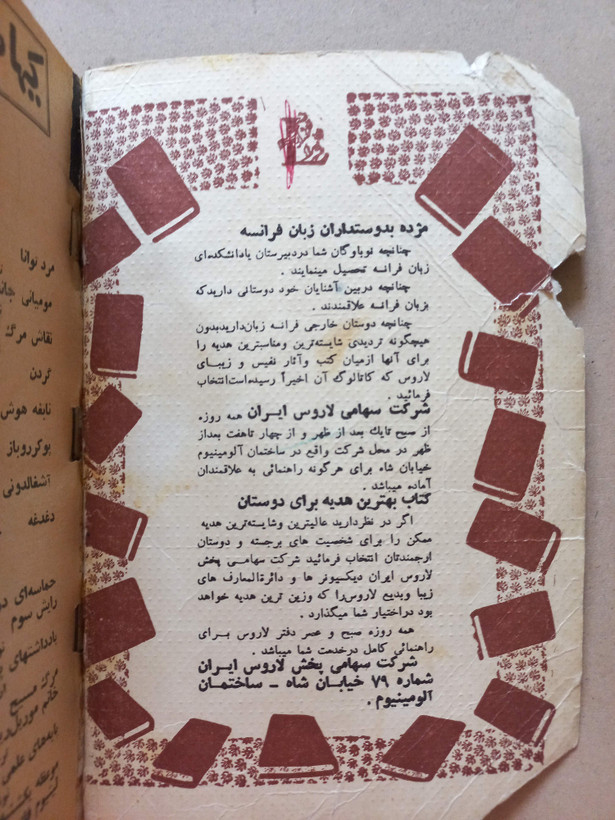 کیها
مرد نوانا
مومیائی
نقاش مرگ
گردن
نابغه هوش
پوکرروباز
آشغالدونی
دغدغه
حماسه‌ای
رایش سوم
یادداشتهای
مرگ مسیح
خانم
پایه‌های علمی
مژده بدوستداران زبان فرانسه
چنانچه نوباوگان شما دردبیرستان یادانشکده‌ای
زبان فرانسه تحصیل مینمایند .
چنانچه دربین آشنایان خود دوستانی داریدکه
بزبان فرانسه علاقمندند .
چنانچه دوستان خارجی فرانسه زبان‌داریدبدون
هیچگونه تردیدی شایسته‌ترین ومناسبترین هدیه را
برای آنها ازمیان کتب وآثار نفیس و زیبای
لاروس که کاتالوگ آن اخیراً رسیده‌است‌انتخاب
فرمائید .
شرکت سهامی لاروس ایران همه روزه
از صبح تایک بعد از ظهر و از چهار تاهفت بعداز
ظهر در محل شرکت واقع در ساختمان آلومینیوم
خیابان شاه برای هرگونه راهنمائی به علاقمندان
آماده میباشد .
کتاب بهترین هدیه برای دوستان
اگر در نظردارید عالیترین وشایسته‌ترین هدیه
ممکن را برای شخصیت های برجسته و دوستان
ارجمندتان انتخاب فرمائید شرکت سهامی پخش
لاروس ایران دیکسیونر ها و دائرةالمعارف های
زیبا وبدیع لاروس‌را که وزین ترین هدیه خواهد
بود دراختیار شما میگذارد .
همه روزه صبح و عصر دفتر لاروس برای
راهنمائی کامل درخدمت شما میباشد .
شرکت سهامی پخش لاروس ایران
شماره ۷۹ خیابان شاه - ساختمان
آلومینیوم .